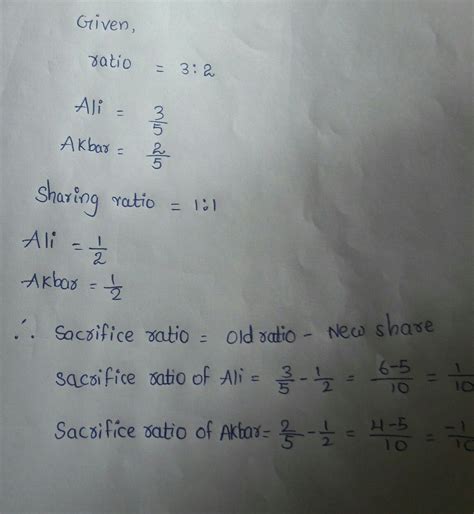 Given,
ratio = 3:2
Ali = 3/5
Akbar = 2/5
Sharing ratio = 1:1
Ali = 1/2
Akbar = 1/2
∴ Sacrifice ratio = Old ratio - New share
Sacrifice ratio of Ali = 3/5 - 1/2 = 6-5/10 = 1/10
Sacrifice ratio of Akbar = 2/5 - 1/2 = 4-5/10 = -1/10